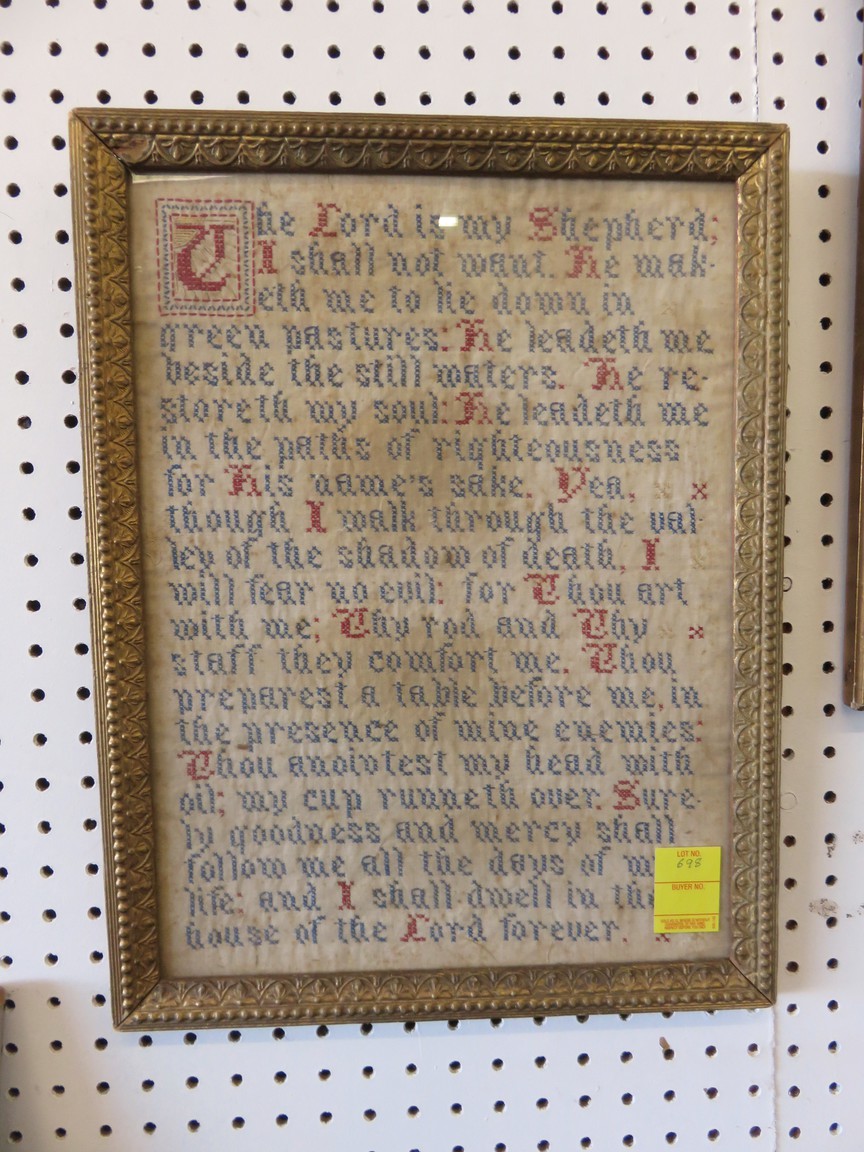 The Lord is my Shepherd;
I shall not want. He mak-
eth me to lie down in
green pastures: He leadeth me
beside the still waters. He re-
storeth my soul: He leadeth me
in the paths of righteousness
for His name's sake. Yea,
though I walk through the val-
ley of the shadow of death, I
will fear no evil: for Thou art
with me; Thy rod and Thy
staff they comfort me. Thou
preparest a table before me, in
the presence of mine enemies:
Thou anointest my head with
oil; my cup runneth over. Sure-
ly goodness and mercy shall
follow me all the days of
life, and I shall dwell in
house of the Lord forever.
LOT NO.
698
BUYER NO.